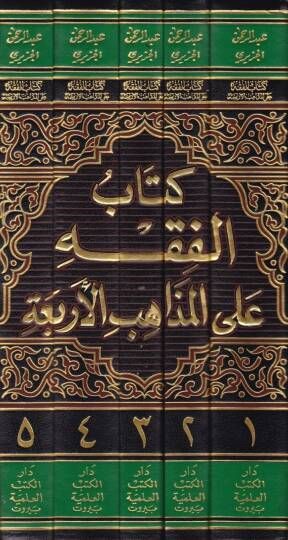 عبد الرحمن عبد الرحمن عبد الرحمن عبد الرحمن عبد الرحمن
الجزيري الجزيري الجزيري الجزيري الجزيري
كتاب الفقه كتاب الفقه كتاب الفقه كتاب الفقه كتاب الفقه
على المذاهب الأربعة على المذاهب الأربعة على المذاهب الأربعة على المذاهب الأربعة على المذاهب الأربعة
كتاب
الفقه
على المذاهب الأربعة
١ ٢ ٣ ٤ ٥
دار دار دار دار دار
الكتب الكتب الكتب الكتب الكتب
العلمية العلمية العلمية العلمية العلمية
بيروت بيروت بيروت بيروت بيروت